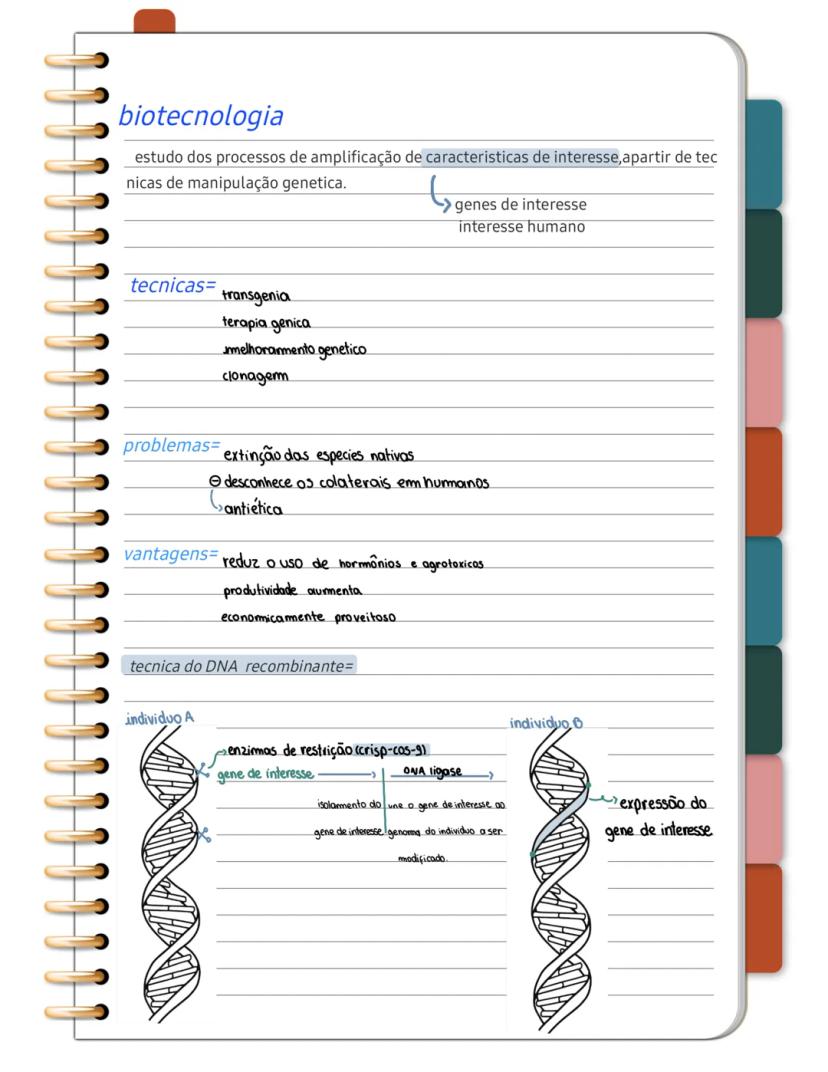 biotecnologia
estudo dos processos de amplificação de caracteristicas de interesse,apartir de tec
nicas de manipulação genetica.
genes de interesse
interesse humano
tecnicas=
transgenia
terapia genica
melhoramento genetico
clonagem
problemas=
extinção das especies nativas
desconhece os colaterais em humanos
antiética
vantagens=
reduz o uso de hormônios e agrotoxicos
produtividade aumenta
economicamente proveitoso
tecnica do DNA recombinante=
individuo A
enzimas de restrição (crisp-cas-9)
gene de interesse
DNA ligase
isolamento do
gene de interesse
une o gene de interesse ao
genoma do individuo a ser
modificado.
individuo B
expressão do
gene de interesse